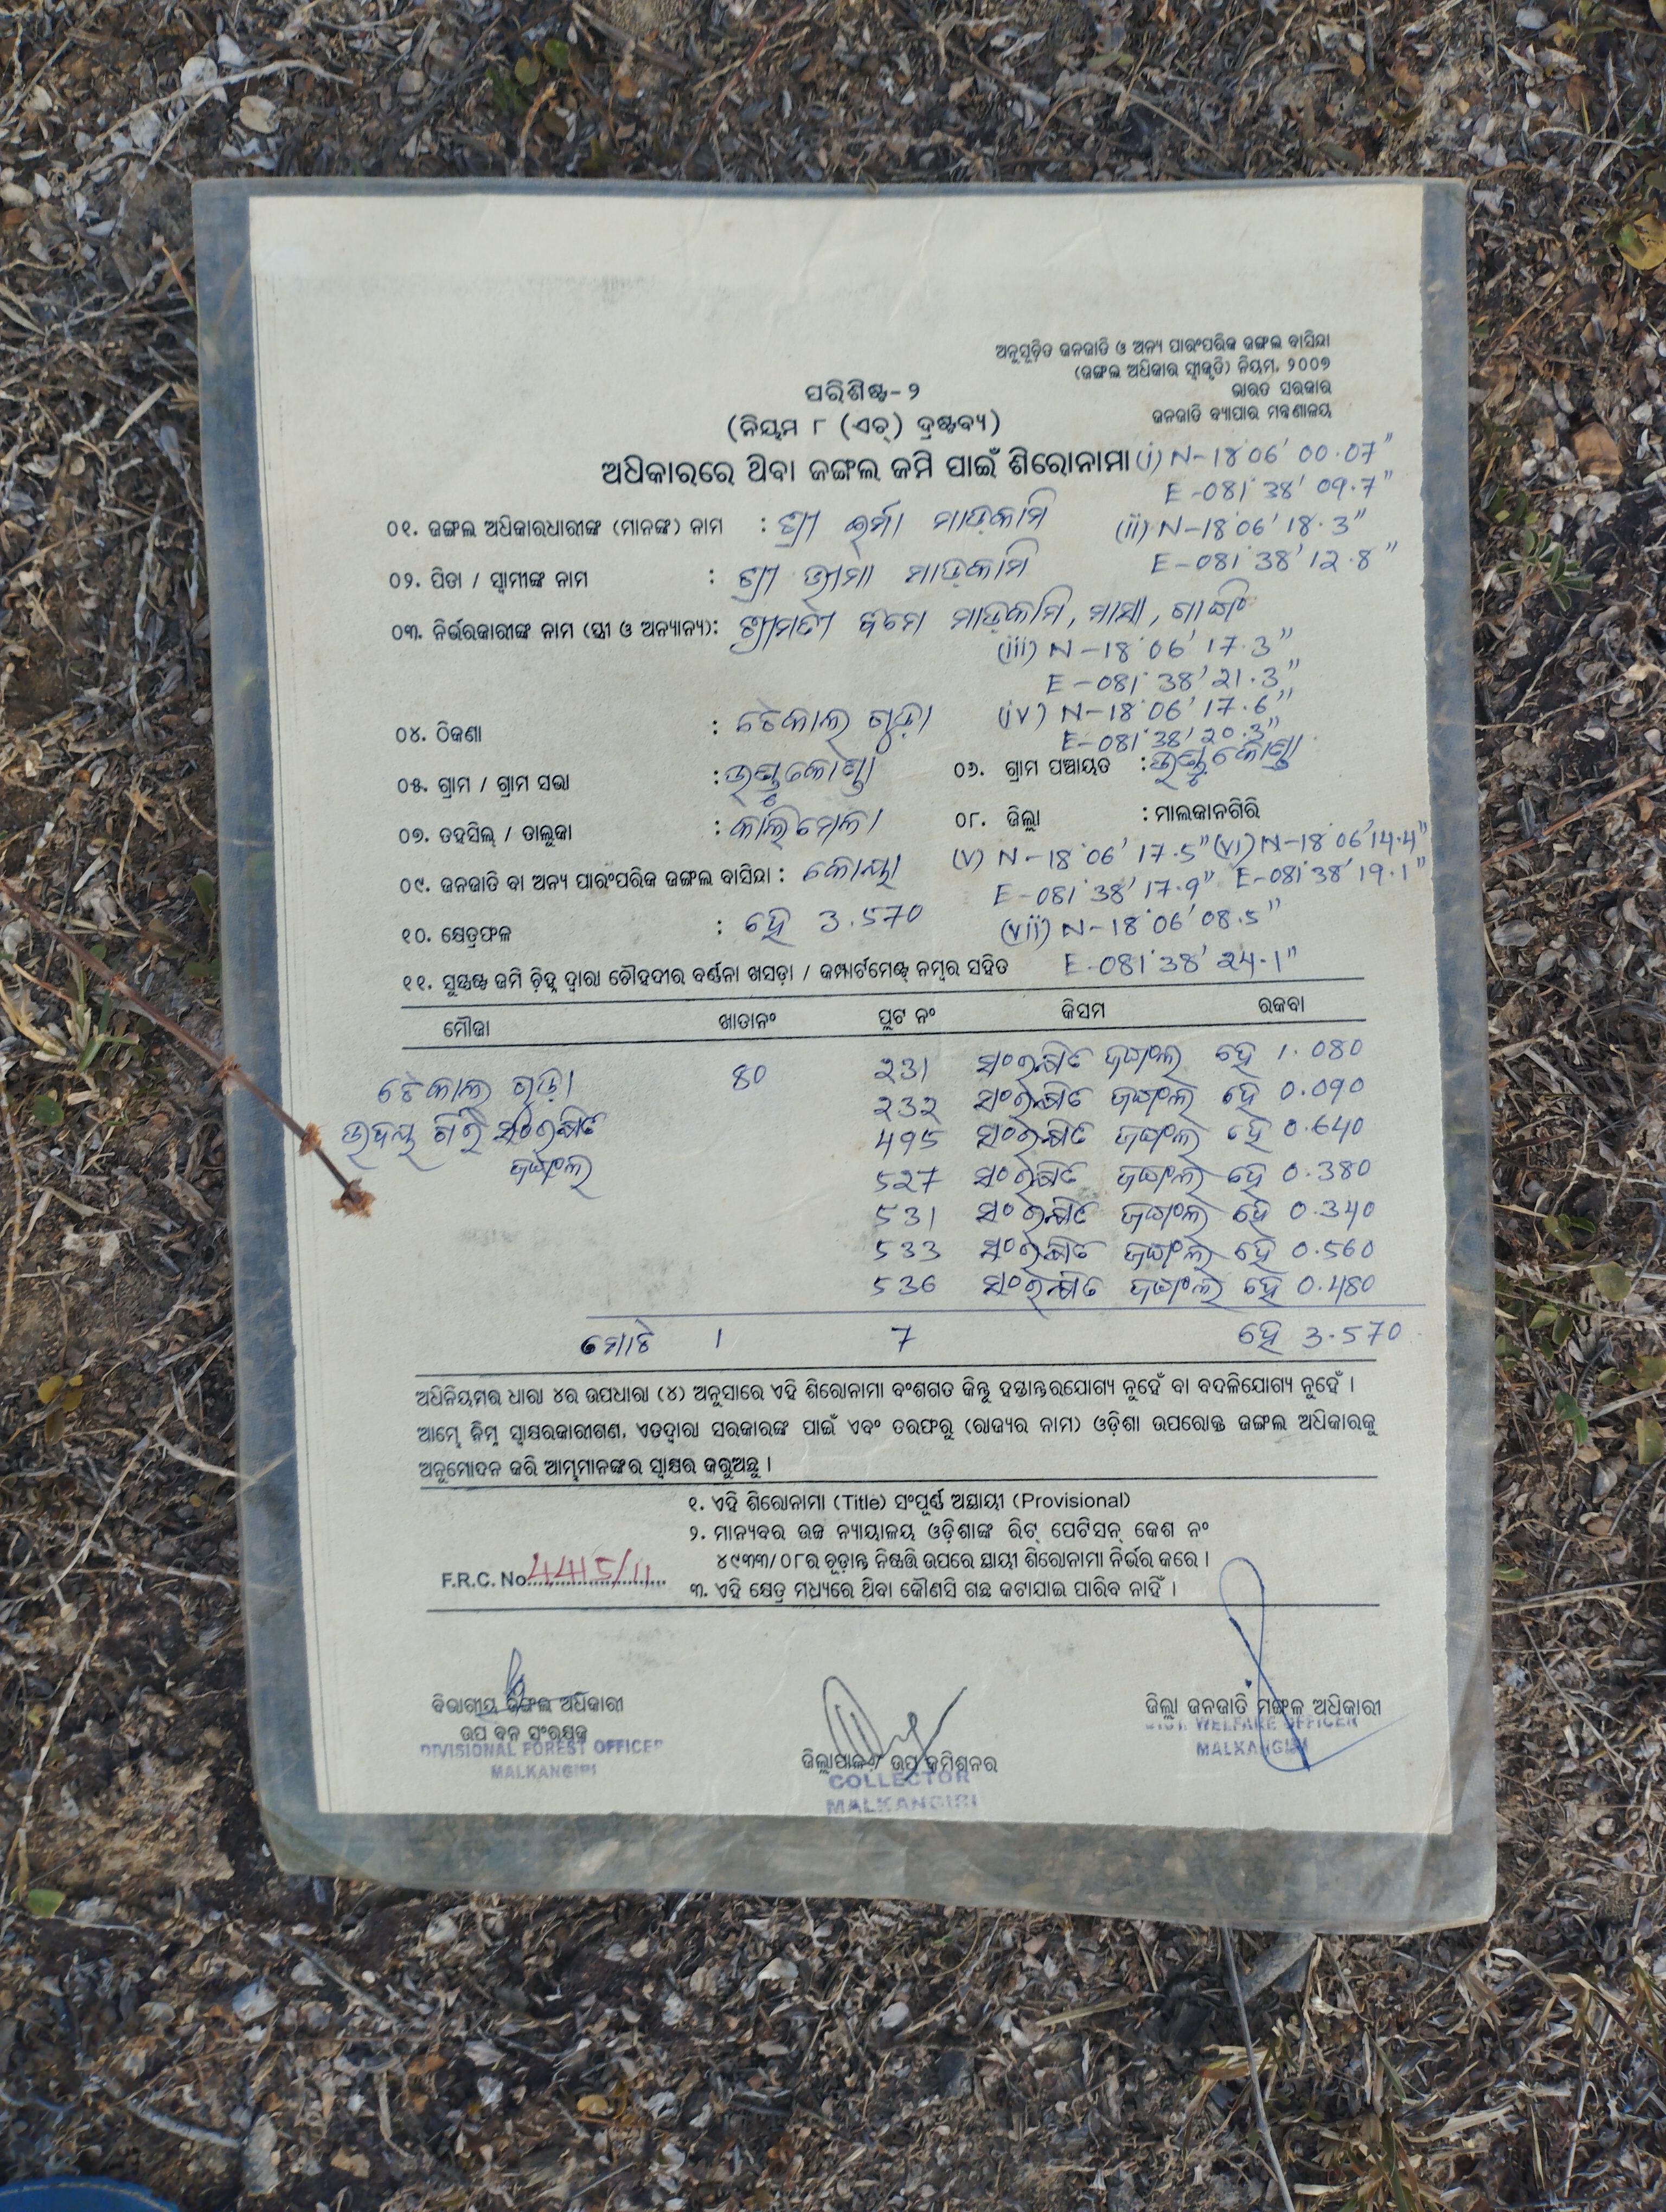 ଅନୁସୂଚିତ ଜନଜାତି ଓ ଅନ୍ୟ ପାରଂପରିକ ଜଙ୍ଗଲ ବାସିନ୍ଦା
(ଜଙ୍ଗଲ ଅଧିକାର ସ୍ୱୀକୃତି) ନିୟମ, ୨୦୦୭
ଭାରତ ସରକାର
ଜନଜାତି ବ୍ୟାପାର ମନ୍ତ୍ରଣାଳୟ
ପରିଶିଷ୍ଟ-୨
(ନିୟମ ୮ (ଏଚ୍) ଦ୍ରଷ୍ଟବ୍ୟ)
ଅଧିକାରରେ ଥିବା ଜଙ୍ଗଲ ଜମି ପାଇଁ ଶିରୋନାମା (i) N-18°06'00.07"
E-081°38'09.7"
୦୧. ଜଙ୍ଗଲ ଅଧିକାରଧାରୀଙ୍କ (ମାନଙ୍କ) ନାମ : ଶ୍ରୀ ଇର୍ମା ମାଡ଼କାମି (ii) N-18°06'18.3"
E-081°38'12.8"
୦୨. ପିତା / ସ୍ୱାମୀଙ୍କ ନାମ : ଶ୍ରୀ ଭୀମା ମାଡ଼କାମି
୦୩. ନିର୍ଭରକାରୀଙ୍କ ନାମ (ସ୍ତ୍ରୀ ଓ ଅନ୍ୟାନ୍ୟ): ଶ୍ରୀମତୀ ମାଡ଼କାମି,
(iii) N-18°06'17.3"
E-081°38'21.3"
(iv) N-18°06'17.6"
E-081°38'20.3"
୦୪. ଠିକଣା : ଟେକାଲ ଗୁଡ଼ା
୦୫. ଗ୍ରାମ / ଗ୍ରାମ ସଭା : ୦୬. ଗ୍ରାମ ପଞ୍ଚାୟତ :
୦୭. ତହସିଲ୍ / ତାଲୁକା : କାଲିମେଳା ୦୮. ଜିଲ୍ଲା : ମାଲକାନଗିରି
(v) N-18°06'17.5" (vi) N-18°06'14.4"
୦୯. ଜନଜାତି ବା ଅନ୍ୟ ପାରଂପରିକ ଜଙ୍ଗଲ ବାସିନ୍ଦା : କୋୟା
E-081°38'17.9" E-081°38'19.1"
୧୦. କ୍ଷେତ୍ରଫଳ : ହେ 3.570 (vii) N-18°06'08.5"
E-081°38'24.1"
୧୧. ସୁସ୍ପଷ୍ଟ ଜମି ଚିହ୍ନ ଦ୍ୱାରା ଚୌହଦୀର ବର୍ଣ୍ଣନା ଖସଡ଼ା / କମ୍ପାର୍ଟମେଣ୍ଟ ନମ୍ବର ସହିତ
ମୌଜା ଖାତାନଂ ପ୍ଲଟ ନଂ କିସମ ରକବା
ଟେକାଲ ଗୁଡ଼ା 80 231 ସଂରକ୍ଷିତ ଜଙ୍ଗଲ ହେ 1.080
232 ସଂରକ୍ଷିତ ଜଙ୍ଗଲ ହେ 0.090
ଉଦୟ ଗିରି ସଂରକ୍ଷିତ 495 ସଂରକ୍ଷିତ ଜଙ୍ଗଲ ହେ 0.640
ଜଙ୍ଗଲ 527 ସଂରକ୍ଷିତ ଜଙ୍ଗଲ ହେ 0.380
531 ସଂରକ୍ଷିତ ଜଙ୍ଗଲ ହେ 0.340
533 ସଂରକ୍ଷିତ ଜଙ୍ଗଲ ହେ 0.560
536 ସଂରକ୍ଷିତ ଜଙ୍ଗଲ ହେ 0.480
ମୋଟ 1 7 ହେ 3.570
ଅଧିନିୟମର ଧାରା ୪ର ଉପଧାରା (୪) ଅନୁସାରେ ଏହି ଶିରୋନାମା ବଂଶଗତ କିନ୍ତୁ ହସ୍ତାନ୍ତରଯୋଗ୍ୟ ନୁହେଁ ବା ବଦଳିଯୋଗ୍ୟ ନୁହେଁ ।
ଆମ୍ଭେ ନିମ୍ନ ସ୍ୱାକ୍ଷରକାରୀଗଣ, ଏତଦ୍ୱାରା ସରକାରଙ୍କ ପାଇଁ ଏବଂ ତରଫରୁ (ରାଜ୍ୟର ନାମ) ଓଡ଼ିଶା ଉପରୋକ୍ତ ଜଙ୍ଗଲ ଅଧିକାରକୁ
ଅନୁମୋଦନ କରି ଆମ୍ଭମାନଙ୍କର ସ୍ୱାକ୍ଷର କରୁଅଛୁ ।
୧. ଏହି ଶିରୋନାମା (Title) ସଂପୂର୍ଣ୍ଣ ଅସ୍ଥାୟୀ (Provisional)
୨. ମାନ୍ୟବର ଉଚ୍ଚ ନ୍ୟାୟାଳୟ ଓଡ଼ିଶାଙ୍କ ରିଟ୍ ପେଟିସନ୍ କେଶ ନଂ
୪୯୩୩/୦୮ର ଚୂଡ଼ାନ୍ତ ନିଷ୍ପତ୍ତି ଉପରେ ସ୍ଥାୟୀ ଶିରୋନାମା ନିର୍ଭର କରେ ।
F.R.C. No. 4415/11
୩. ଏହି କ୍ଷେତ୍ର ମଧ୍ୟରେ ଥିବା କୌଣସି ଗଛ କଟାଯାଇ ପାରିବ ନାହିଁ ।
ବିଭାଗୀୟ ଜଙ୍ଗଲ ଅଧିକାରୀ
ଉପ ବନ ସଂରକ୍ଷକ
DIVISIONAL FOREST OFFICER
MALKANGIRI
ଜିଲ୍ଲାପାଳ / ଉପ କମିଶନର
COLLECTOR
MALKANGIRI
ଜିଲ୍ଲା ଜନଜାତି ମଙ୍ଗଳ ଅଧିକାରୀ
DIST. WELFARE OFFICER
MALKANGIRI